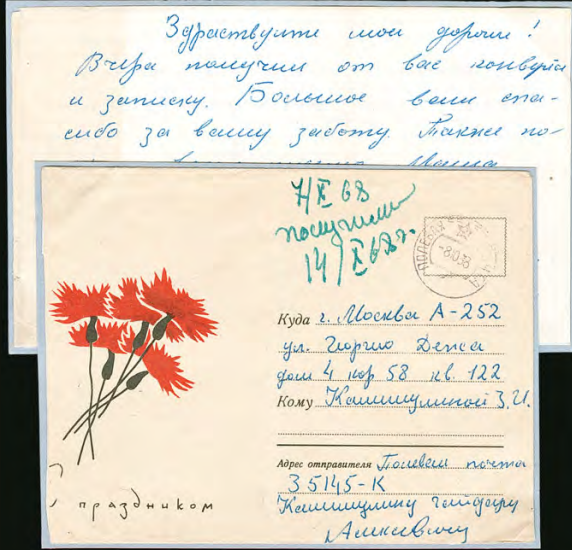 Здраствуйте мои дорогие!
Вчера получил от вас конверта
и записку. Большое вам спа-
сибо за вашу заботу. Также по-
7/X 68
получили
14/X 68г.
Куда г. Москва А-252
ул. Георгио Дежа
дом 4 кор 58 кв. 122
Кому Калишулиной З.И.
Адрес отправителя Полевая почта
35145-К
праздником